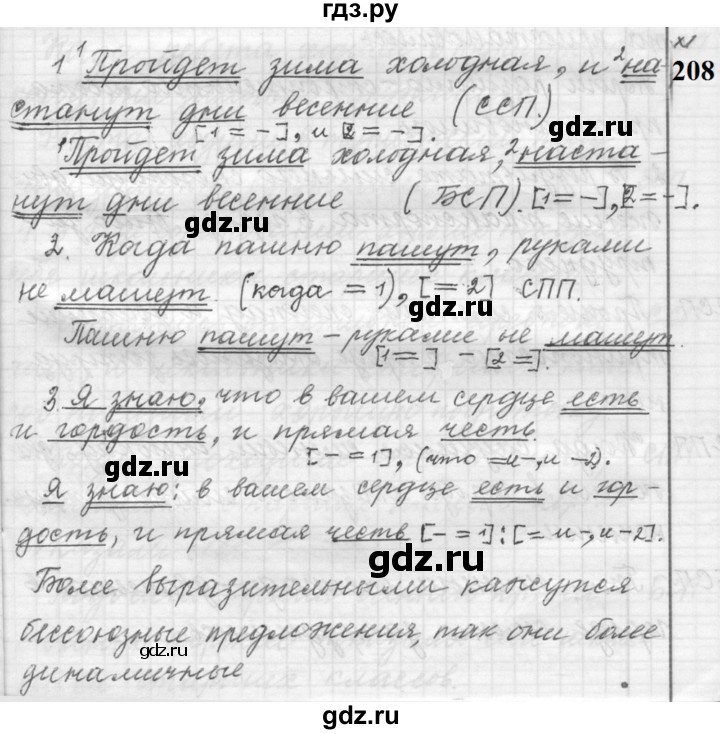 гдз.ру
№
208
1. ¹Пройдет зима холодная, и ²на-
станут дни весенние (ССП.)
[1 = -], и [2 = -].
gdz.ru
¹Пройдет зима холодная, ²наста-
нут дни весенние (БСП). [1 = -], [2 = -].
gdz.ru
2. Когда пашню пашут, руками
не машут. (когда = 1), [= 2] СПП.
gdz.ru
Пашню пашут – руками не машут.
[1 = ] – [2 = ].
3. Я знаю, что в вашем сердце есть
и гордость, и прямая честь.
gdz.ru
[- = 1], (что = и -, и - 2).
Я знаю: в вашем сердце есть и гор-
дость, и прямая честь [- = 1] : [= и -, и - 2].
gdz.ru
Более выразительными кажутся
бессоюзные предложения, так они более
gdz.ru
динамичные
gdz.ru
gdz.ru